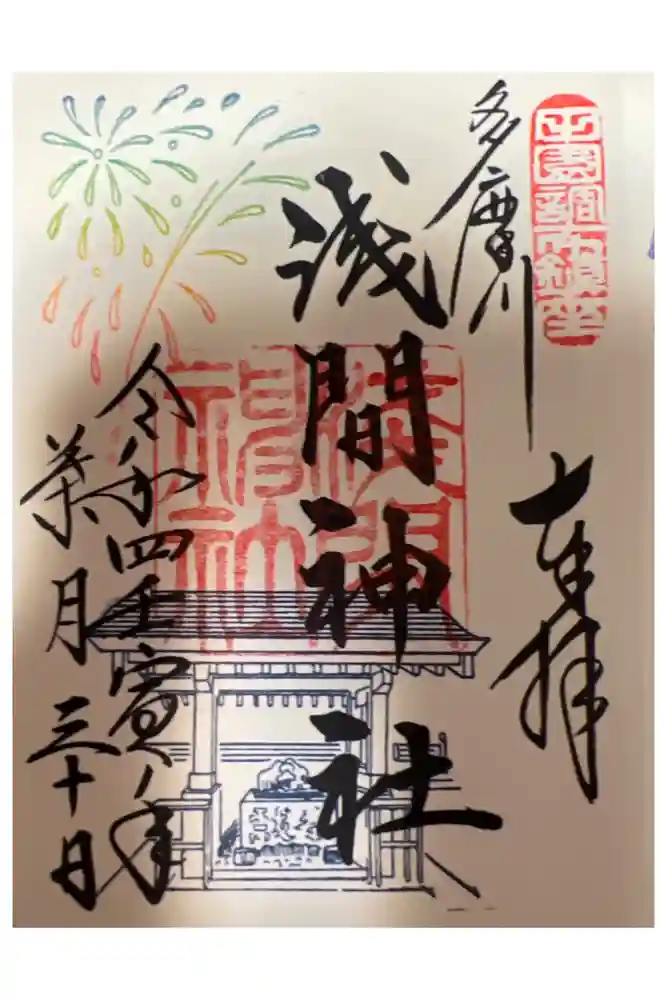 田園調布鎮座
奉拝
多摩川
浅間神社
令和四壬寅ノ年
葉月三十日